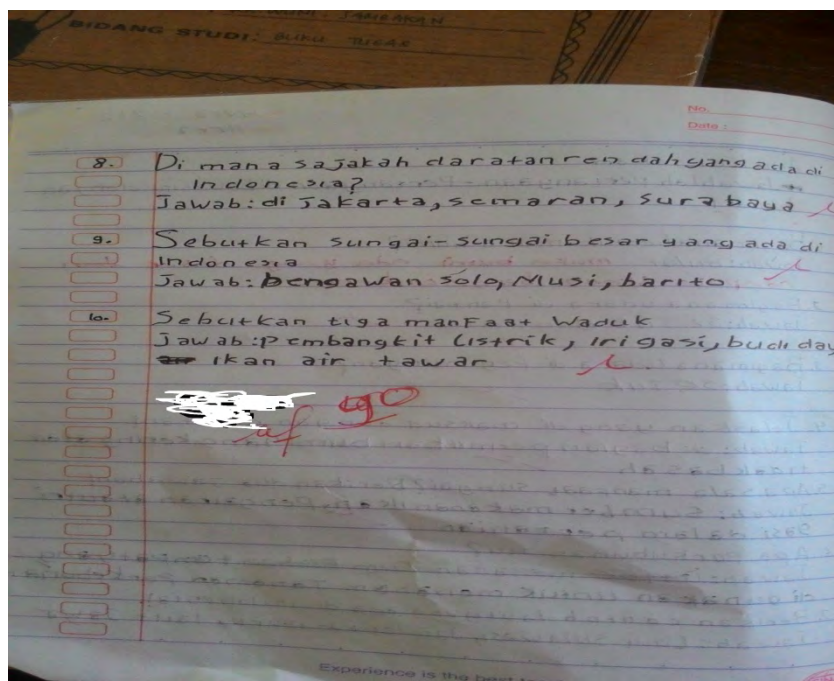 JAMBAKAN
BIDANG STUDI: BUKU TUGAS
No.
Date:
8. Di mana sajakah daratan rendah yang ada di
Indonesia?
Jawab: di Jakarta, semaran, Surabaya
9. Sebutkan sungai-sungai besar yang ada di
Indonesia
Jawab: bengawan solo, Musi, barito
10. Sebutkan tiga manfaat Waduk
Jawab: pembangkit listrik, irigasi, budi day
ikan air tawar
90
Experience is the best